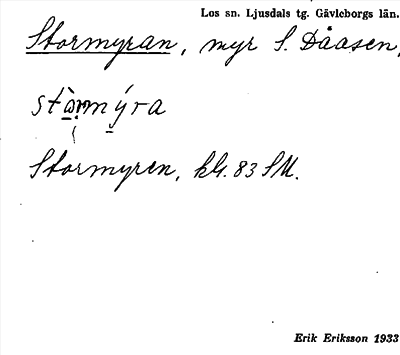 Los sn. Ljusdals tg. Gävleborgs län.
Stormyran, myr S. Dåasen,
stòrmýra
Stormyren, kls. 83 SM.
Erik Eriksson 1933